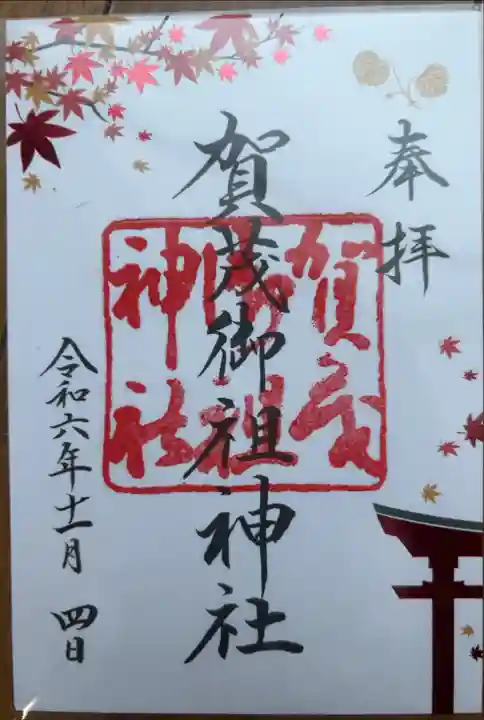 奉拝
賀茂御祖神社
賀茂
御祖
神社
令和六年十一月 四日